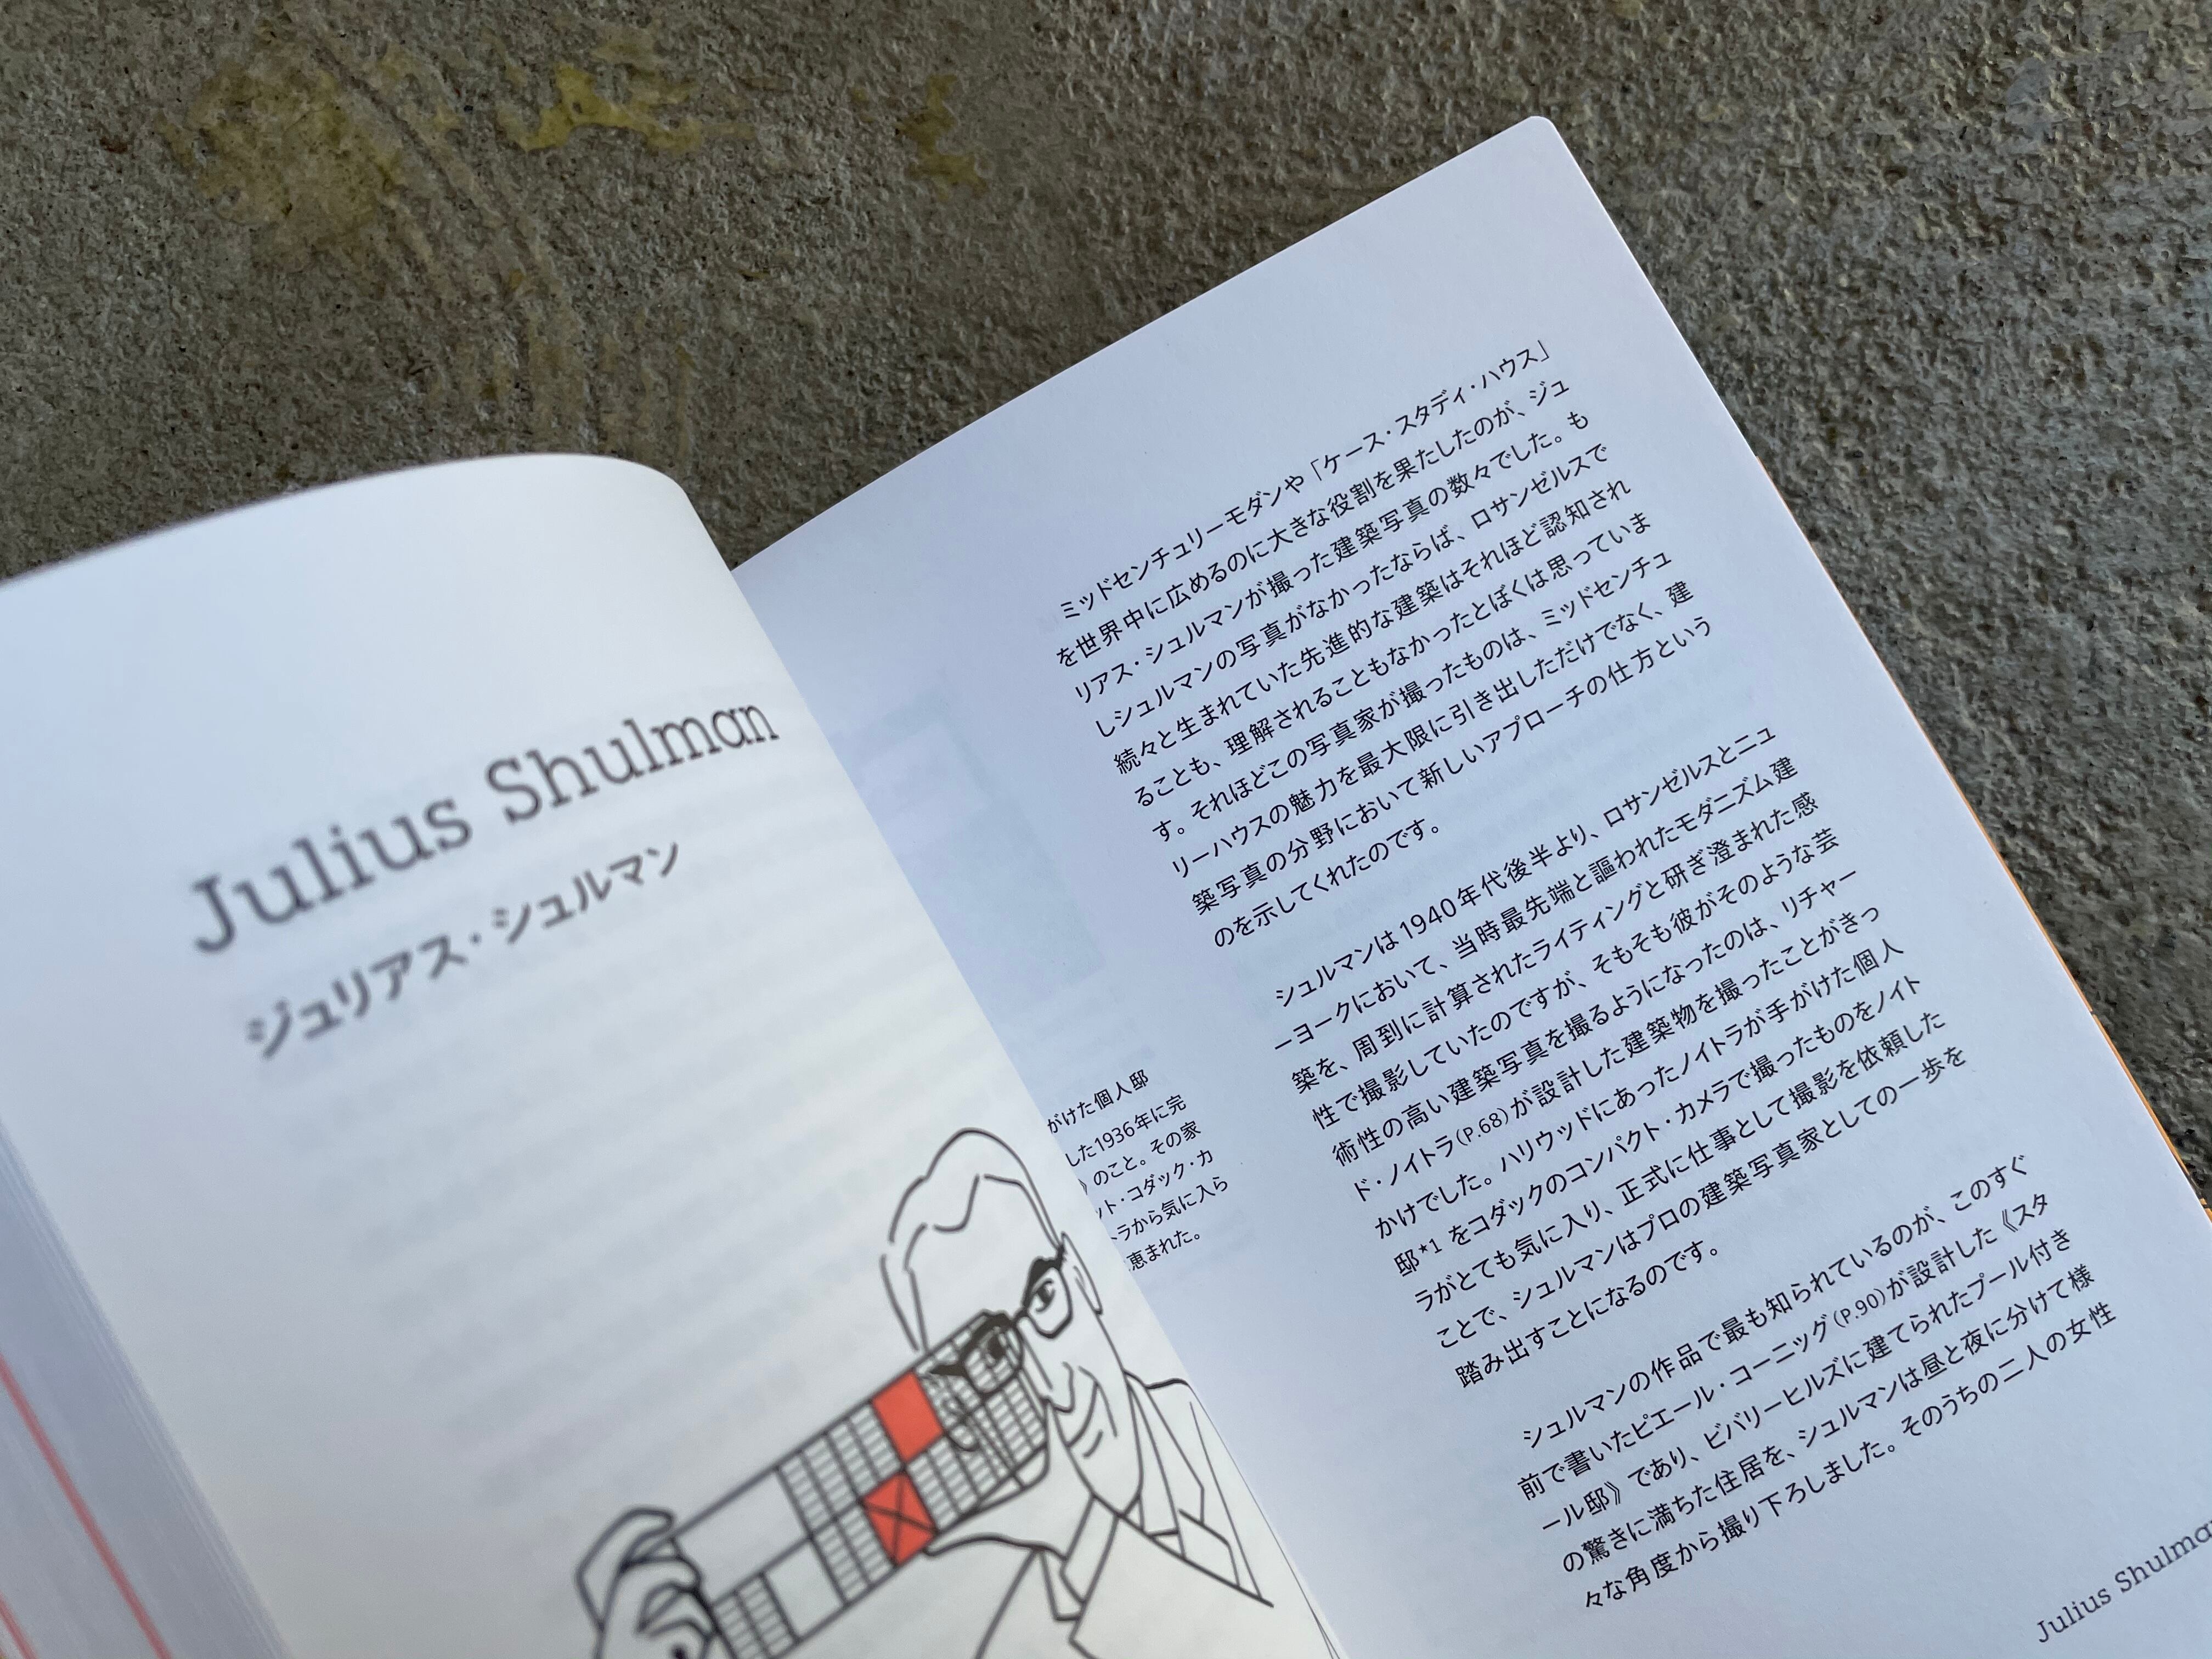 Julius Shulman
ジュリアス・シュルマン
がけた個人邸
した1936年に完
》のこと。その家
ット・コダック・カ
トラから気に入ら
恵まれた。
ミッドセンチュリーモダンや「ケース・スタディ・ハウス」
を世界中に広めるのに大きな役割を果たしたのが、ジュ
リアス・シュルマンが撮った建築写真の数々でした。も
しシュルマンの写真がなかったならば、ロサンゼルスで
続々と生まれていた先進的な建築はそれほど認知され
ることも、理解されることもなかったとぼくは思っていま
す。それほどこの写真家が撮ったものは、ミッドセンチュ
リーハウスの魅力を最大限に引き出しただけでなく、建
築写真の分野において新しいアプローチの仕方という
のを示してくれたのです。
シュルマンは1940年代後半より、ロサンゼルスとニュ
ーヨークにおいて、当時最先端と謳われたモダニズム建
築を、周到に計算されたライティングと研ぎ澄まされた感
性で撮影していたのですが、そもそも彼がそのような芸
術性の高い建築写真を撮るようになったのは、リチャー
ド・ノイトラ(P.68)が設計した建築物を撮ったことがきっ
かけでした。ハリウッドにあったノイトラが手がけた個人
邸*1 をコダックのコンパクト・カメラで撮ったものをノイト
ラがとても気に入り、正式に仕事として撮影を依頼した
ことで、シュルマンはプロの建築写真家としての一歩を
踏み出すことになるのです。
シュルマンの作品で最も知られているのが、このすぐ
前で書いたピエール・コーニッグ(P.90)が設計した《スタ
ール邸》であり、ビバリーヒルズに建てられたプール付き
の驚きに満ちた住居を、シュルマンは昼と夜に分けて様
々な角度から撮り下ろしました。そのうちの二人の女性
Julius Shulman